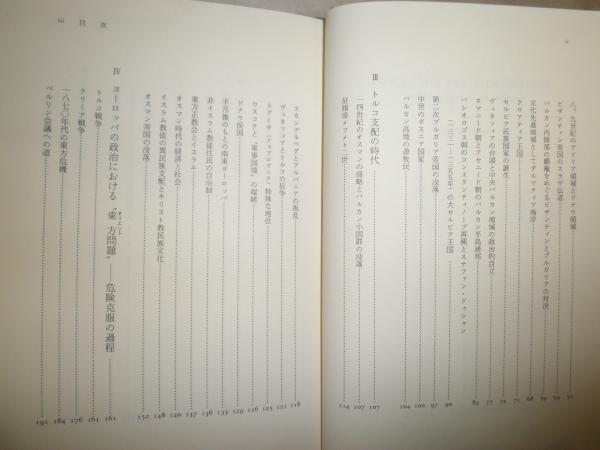 八、九世紀のアドリア領域とドナウ領域 51
ビザンティン帝国のスラヴ伝道 54
バルカン内陸部の覇権をめぐるビザンティンとブルガリアの対決 59
文化先進地域としてのダルマティア海岸 68
クロアティア王国 71
セルビア民族国家の誕生 76
ヴェネツィアの台頭と中央バルカン地域の政治的自立 77
ネマニード朝とアセニード朝のバルカン半島統御 83
パレオロゴス朝のコンスタンティノープル再興とステファン・ドゥシャン
(一三三一—一三五五年)の大セルビア王国 90
第二次ブルガリア帝国の没落 97
中世のボスニア国家 100
バルカン高地の遊牧民 104
III トルコ支配の時代 107
一四世紀のオスマンの侵略とバルカン小国群の没落 107
征服帝メフメト二世 114
目次
スカンデルベグとアルバニアの叛乱 118
ヴェネツィアとトルコの抗争 121
ラグーサ(ドゥブロヴニク)特殊な地位 125
ウスコクと「軍事国境」の端緒 126
ドナウ侯国 129
半月旗のもとの南東ヨーロッパ 133
非イスラム教徒住民の自治制 136
東方正教会とイスラム 137
オスマン時代の経済と社会 140
イスラム教徒の異民族支配とキリスト教民族文化 148
オスマン帝国の没落 152
IV ヨーロッパの政治における〝東方問題〟——危険克服の過程 161
オリエント
トルコ戦争 161
クリミア戦争 176
一八七〇年代の東方危機 184
ベルリン会議への道 191